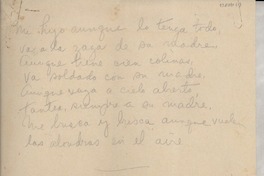 mi hijo aunque lo tenga todo,
va a la zaga de su madre.
Aunque tiene cien colinas,
va soldado con su madre.
Aunque vaya a cielo abierto,
siempre a su madre.
me busca y busca aunque vuelen
las alondras en el aire